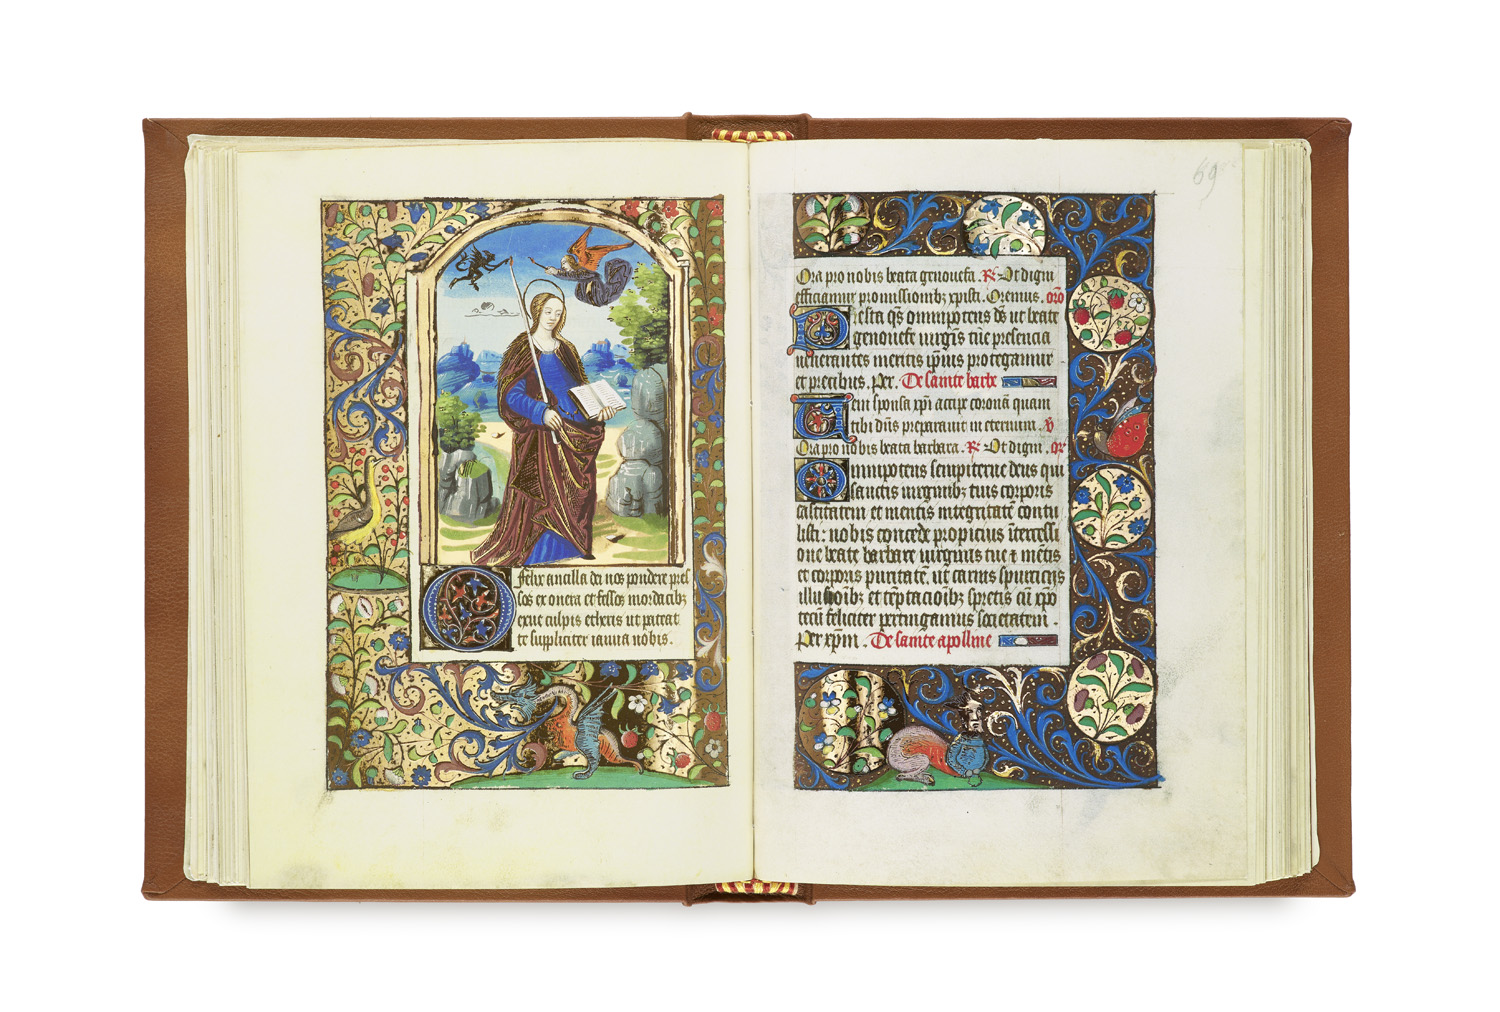 O felix ancilla dei nos pondere pres
sos ex onera et fessos mordacibꝫ
exue culpis etheris ut pateat
te suppliciter ianua nobis.
69
Ora pro nobis beata genovefa. R̷ Ut digni
efficiamur promissionibꝫ xp̄isti. Oremus. oro
Presta q̄s omnipotens d̄s ut beate
genovefe virgīs tue presencia
venerantes meritis ip̄ius protegamur
et precibus. Per. De sainte barbe
Veni sponsa xp̄i accipe coronā quam
tibi dn̄s preparavit in eternum. v̷
Ora pro nobis beata barbara. R̷ Ut digni. or
Omnipotens sempiterne deus qui
sanctis virginibꝫ tuis corporis
castitatem et mentis integritatē contu
listi: nobis concede propicius ītercessi
one beate barbare virginis tue ⁊ mētis
et corporis puritatē, ut carius spurticijs
illusioibꝫ et tēptacioibꝫ spretis cū xp̄o
tecū feliciter pertingamus societatem.
Per xp̄m. De sainte apolline